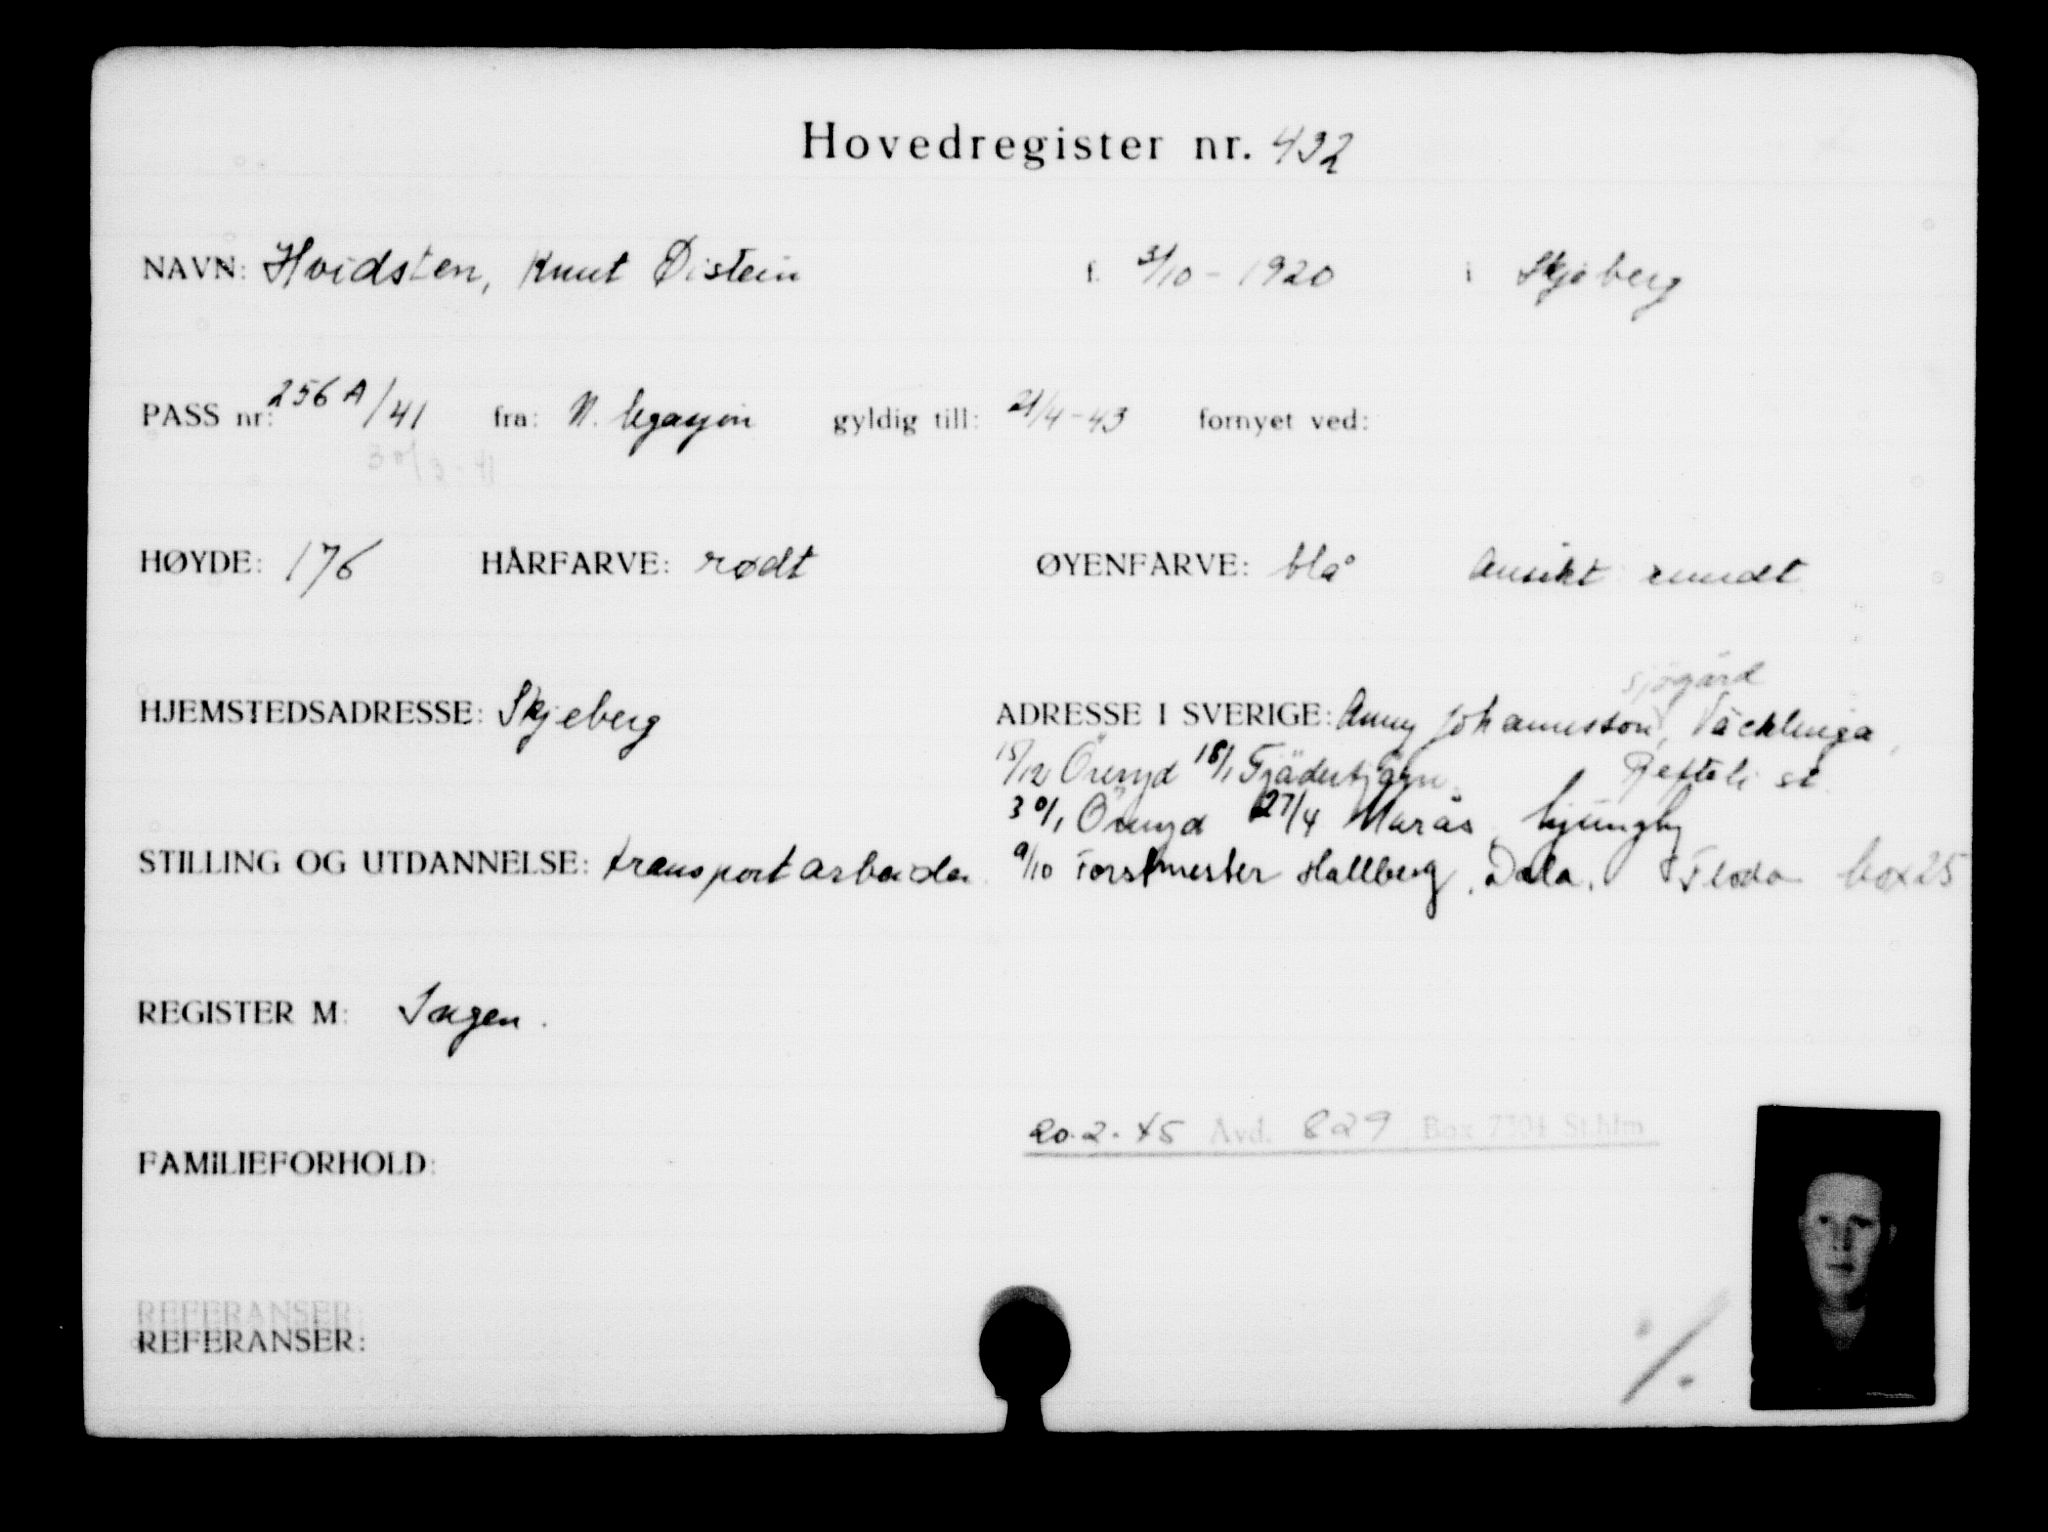 Hovedregister nr. 432
NAVN: Hvidsten, Knut Øistein f. 3/10 - 1920 i Skjeberg
PASS nr: 256 A/41 fra: N. legasjon gyldig till: 21/4 - 43 fornyet ved:
30/3 - 41
HØYDE: 176 HÅRFARVE: rødt ØYENFARVE: blå Ansikt rundt
sjögård
HJEMSTEDSADRESSE: Skjeberg ADRESSE I SVERIGE: Anny Johannesson, Väcklinga,
15/12 Öreryd 18/1 Tjädertjärn Reftele st.
30/1 Öreryd 27/4 Marås, Ljungby
STILLING OG UTDANNELSE: transportarbeider. 9/10 Forstmester Hallberg, Dala, Floda box 25
REGISTER M: Ingen.
20.2.45 Avd. 829 Box 7304 St.hlm
FAMILIEFORHOLD:
REFERANSER:
REFERANSER: